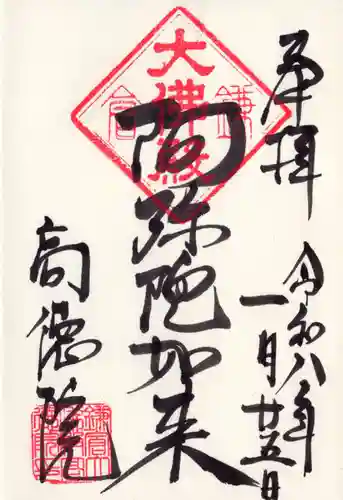 奉拝
令和八年
一月廿五日
大佛殿
鎌倉
阿弥陀如来
高徳院